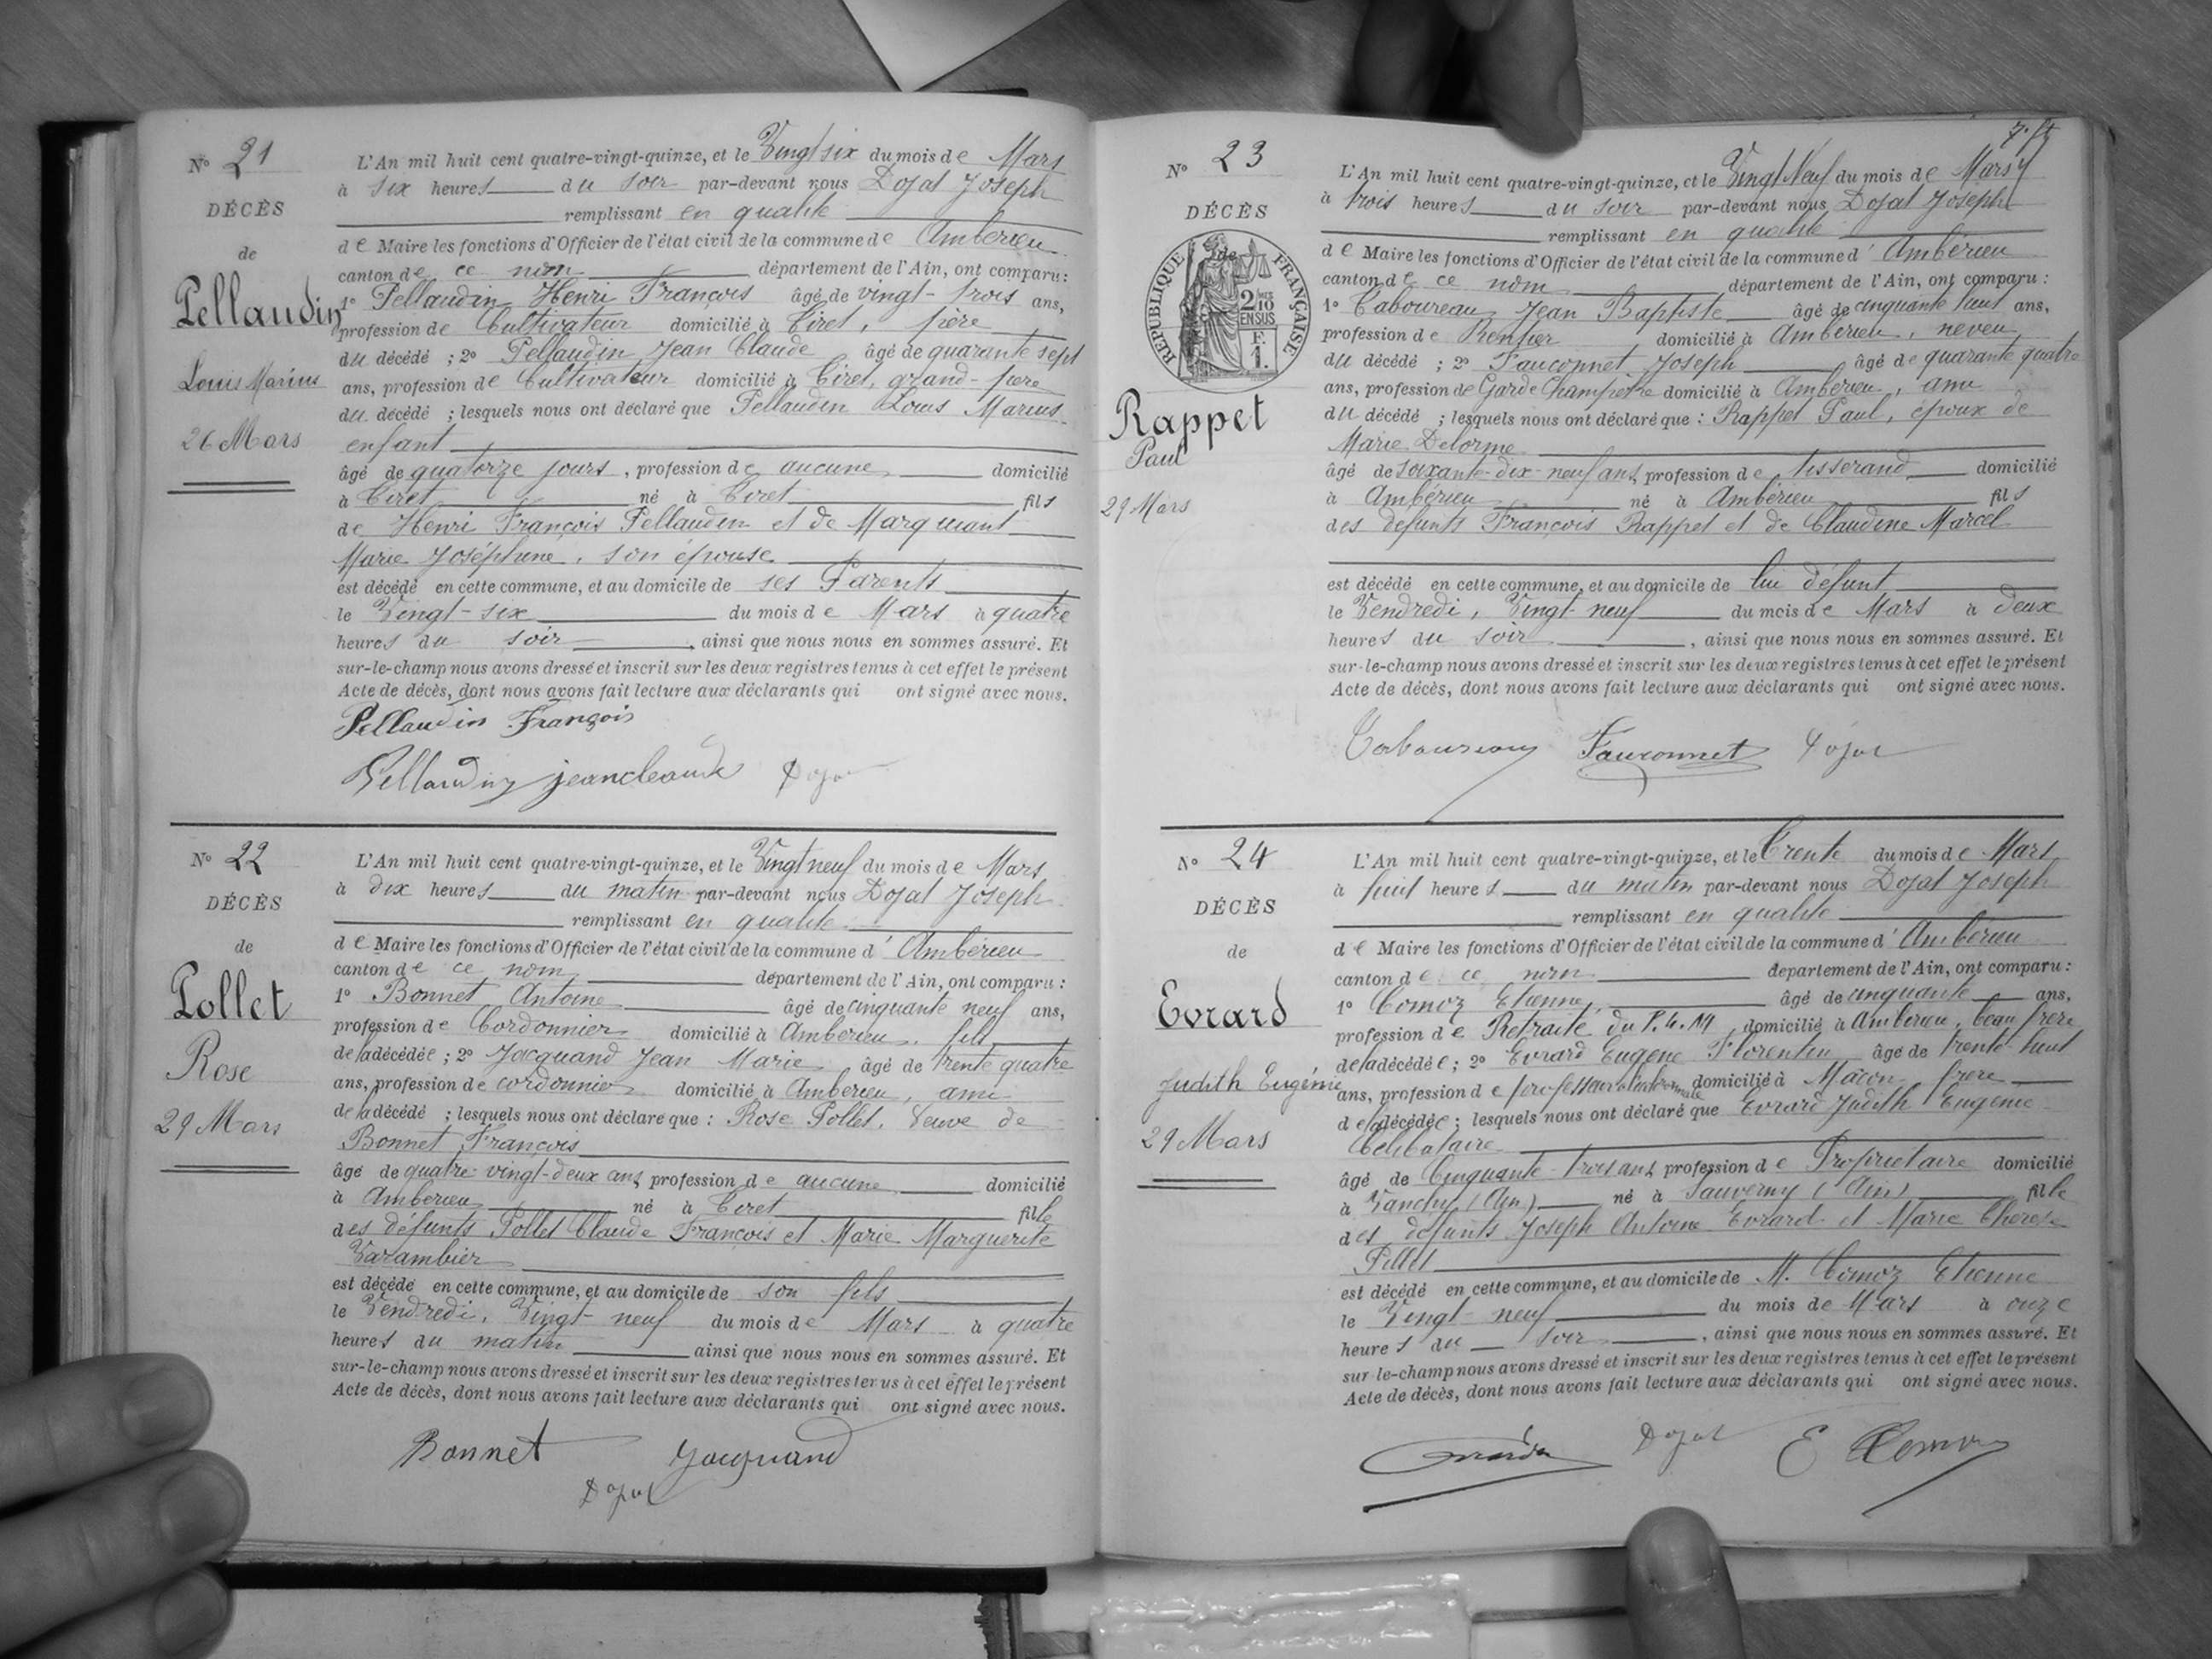 N° 21
DÉCÈS
de
Pellaudin
Louis Marius
26 Mars
L'An mil huit cent quatre-vingt-quinze, et le Vingt six du mois de Mars
à six heures du soir par-devant nous Dojat Joseph
remplissant en qualité
de Maire les fonctions d'Officier de l'état civil de la commune de Ambérieu
canton de ce nom département de l'Ain, ont comparu :
1° Pellaudin Henri François âgé de vingt-trois ans,
profession de Cultivateur domicilié à Tiret, père
du décédé ; 2° Pellaudin Jean Claude âgé de quarante sept
ans, profession de Cultivateur domicilié à Tiret, grand-père
du décédé ; lesquels nous ont déclaré que Pellaudin Louis Marius
enfant
âgé de quatorze jours, profession de aucune domicilié
à Tiret né à Tiret fils
de Henri François Pellaudin et de Marquant
Marie Joséphine, son épouse
est décédé en cette commune, et au domicile de ses Parents
le Vingt-six du mois de Mars à quatre
heures du soir, ainsi que nous nous en sommes assuré. Et
sur-le-champ nous avons dressé et inscrit sur les deux registres tenus à cet effet le présent
Acte de décès, dont nous avons fait lecture aux déclarants qui ont signé avec nous.
Pellaudin François
Pellaudin jeancleaude Dojat
N° 22
DÉCÈS
de
Pollet
Rose
29 Mars
L'An mil huit cent quatre-vingt-quinze, et le Vingt neuf du mois de Mars
à dix heures du matin par-devant nous Dojat Joseph
remplissant en qualité
de Maire les fonctions d'Officier de l'état civil de la commune d'Ambérieu
canton de ce nom département de l'Ain, ont comparu :
1° Bonnet Antoine âgé de cinquante neuf ans,
profession de Cordonnier domicilié à Ambérieu, fils
de la décédée ; 2° Jacquand Jean Marie âgé de trente quatre
ans, profession de cordonnier domicilié à Ambérieu, ami
de la décédé ; lesquels nous ont déclaré que : Rose Pollet, Veuve de
Bonnet François
âgé de quatre vingt-deux ans, profession de aucune domicilié
à Ambérieu né à Tiret fille
des défunts Pollet Claude François et Marie Marguerite
Varambier
est décédé en cette commune, et au domicile de son fils
le Vendredi, Vingt-neuf du mois de Mars à quatre
heures du matin ainsi que nous nous en sommes assuré. Et
sur-le-champ nous avons dressé et inscrit sur les deux registres tenus à cet effet le présent
Acte de décès, dont nous avons fait lecture aux déclarants qui ont signé avec nous.
Bonnet Jacquand
Dojat
N° 23
DÉCÈS
de
RÉPUBLIQUE FRANÇAISE
2/10 EN SUS
F. 1.
Rappet
Paul
29 Mars
L'An mil huit cent quatre-vingt-quinze, et le Vingt Neuf du mois de Mars
à trois heures du soir par-devant nous Dojat Joseph
remplissant en qualité
de Maire les fonctions d'Officier de l'état civil de la commune d'Ambérieu
canton de ce nom département de l'Ain, ont comparu :
1° Caboureau Jean Baptiste âgé de cinquante huit ans,
profession de Rentier domicilié à Ambérieu, neveu
du décédé ; 2° Fauconnet Joseph âgé de quarante quatre
ans, profession de Garde Champêtre domicilié à Ambérieu, ami
du décédé ; lesquels nous ont déclaré que : Rappet Paul, époux de
Marie Delorme
âgé de soixante-dix-neuf ans, profession de tisserand domicilié
à Ambérieu né à Ambérieu fils
des défunts François Rappet et de Claudine Marcel
est décédé en cette commune, et au domicile de lui défunt
le Vendredi, Vingt-neuf du mois de Mars à deux
heures du soir, ainsi que nous nous en sommes assuré. Et
sur-le-champ nous avons dressé et inscrit sur les deux registres tenus à cet effet le présent
Acte de décès, dont nous avons fait lecture aux déclarants qui ont signé avec nous.
Fauconnet Dojat
N° 24
DÉCÈS
de
Evrard
Judith Eugénie
29 Mars
L'An mil huit cent quatre-vingt-quinze, et le Trente du mois de Mars
à huit heures du matin par-devant nous Dojat Joseph
remplissant en qualité
de Maire les fonctions d'Officier de l'état civil de la commune d'Ambérieu
canton de ce nom département de l'Ain, ont comparu :
1° Comoz Etienne, âgé de cinquante ans,
profession de Retraité du P.L.M, domicilié à Ambérieu, beau frère
de la décédée ; 2° Evrard Eugène Florentin âgé de trente-huit
ans, profession de professeur à l'école normale domicilié à Macon, frère
de la décédée ; lesquels nous ont déclaré que Evrard Judith Eugénie
Célibataire
âgé de Cinquante-trois ans, profession de Propriétaire domicilié
à Vanchy (Ain) né à Sauverny (Ain) fille
des défunts Joseph Antoine Evrard et Marie Thérèse
Pillet
est décédé en cette commune, et au domicile de M. Comoz Etienne
le Vingt-neuf du mois de Mars à onze
heures du soir, ainsi que nous nous en sommes assuré. Et
sur-le-champ nous avons dressé et inscrit sur les deux registres tenus à cet effet le présent
Acte de décès, dont nous avons fait lecture aux déclarants qui ont signé avec nous.
Dojat E Comoz